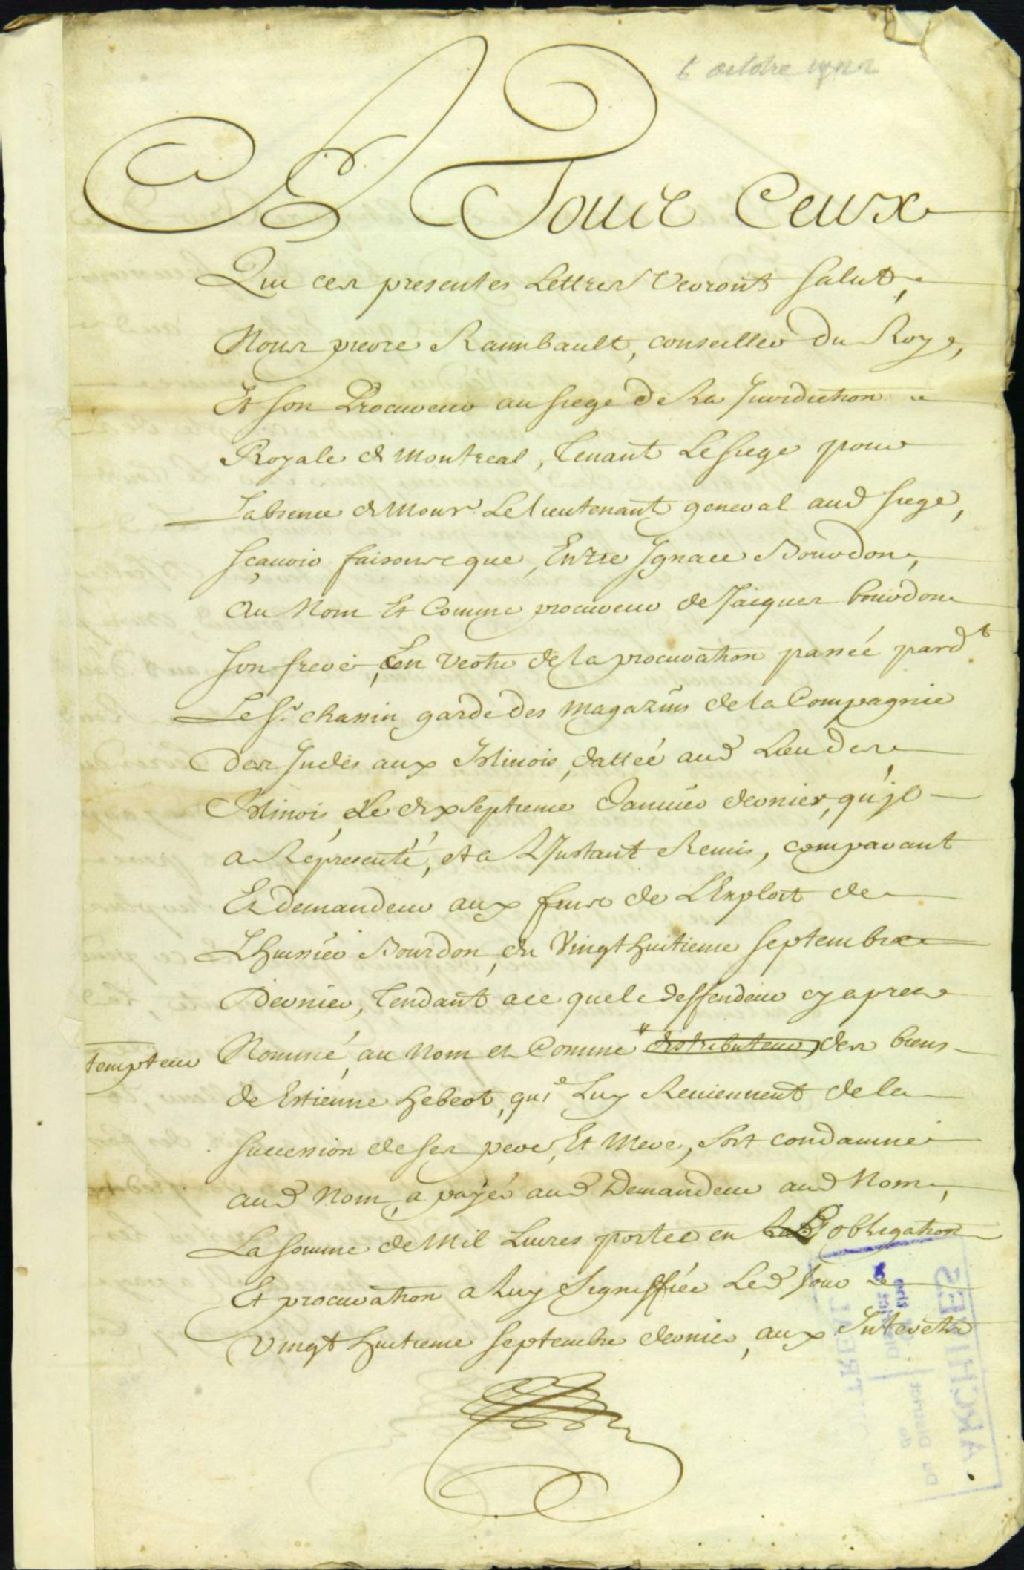 6 octobre 1722
A Tous Ceux
Qui ces presentes Lettres Verront Salut,
Nous pierre Raimbault, conseiller du Roy,
Et son Procureur au siege de La Juridiction
Royale de Montreal, Tenant Le siege pour
Labsence de Monsr. Le lieutenant general aud siege,
sçavoir faisons que, Entre Ignace Bourdon,
Au Nom Et Comme procureur de Jacques bourdon
son frere, en Vertu de la procuration passée pardt
Le Sr. chassin garde des magazins de la Compagnie
Des Indes aux Islinois, dattée aud Lieu des
Islinois, Le dixseptieme Janvier dernier, qu'jl
a Representé, et a L'Instant Remis, comparant
Et demandeur aux fins de L'Exploit de
L'huissier Bourdon, du Vingt huitieme septembre
Dernier, Tendant a ce que le deffendeur cy apres
Nommé, au nom et Comme distributeur, des biens
tempteur
de Estienne hebert, qui Luy Reviennent de la
succession de ses pere, Et Mere, soit condamné
aud Nom, a payer aud Demandeur aud Nom,
La somme de Mil Livres portée en obligation
Et procuration a Luy Signiffiée Led Jour
Vingt huitieme septembre dernier, aux Interets
ARCHIVES